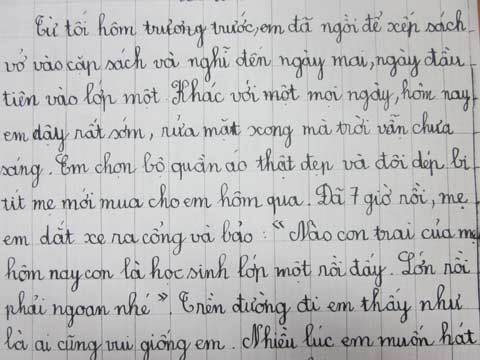 Từ tối hôm trương trước, em đã ngồi để xếp sách
vở vào cặp sách và nghĩ đến ngày mai, ngày đầu
tiên vào lớp một. Khác với một mọi ngày, hôm nay
em dậy rất sớm, rửa mặt xong mà trời vẫn chưa
sáng. Em chọn bộ quần áo thật đẹp và đôi dép bi
tit mẹ mới mua cho em hôm qua. Đã 7 giờ rồi, mẹ
em dắt xe ra cổng và bảo : “ Nào con trai của mẹ
hôm nay con là học sinh lớp một rồi đấy. Lớn rồi
phải ngoan nhé ”. Trên đường đi em thấy như
là ai cũng vui giống em. Nhiều lúc em muốn hát